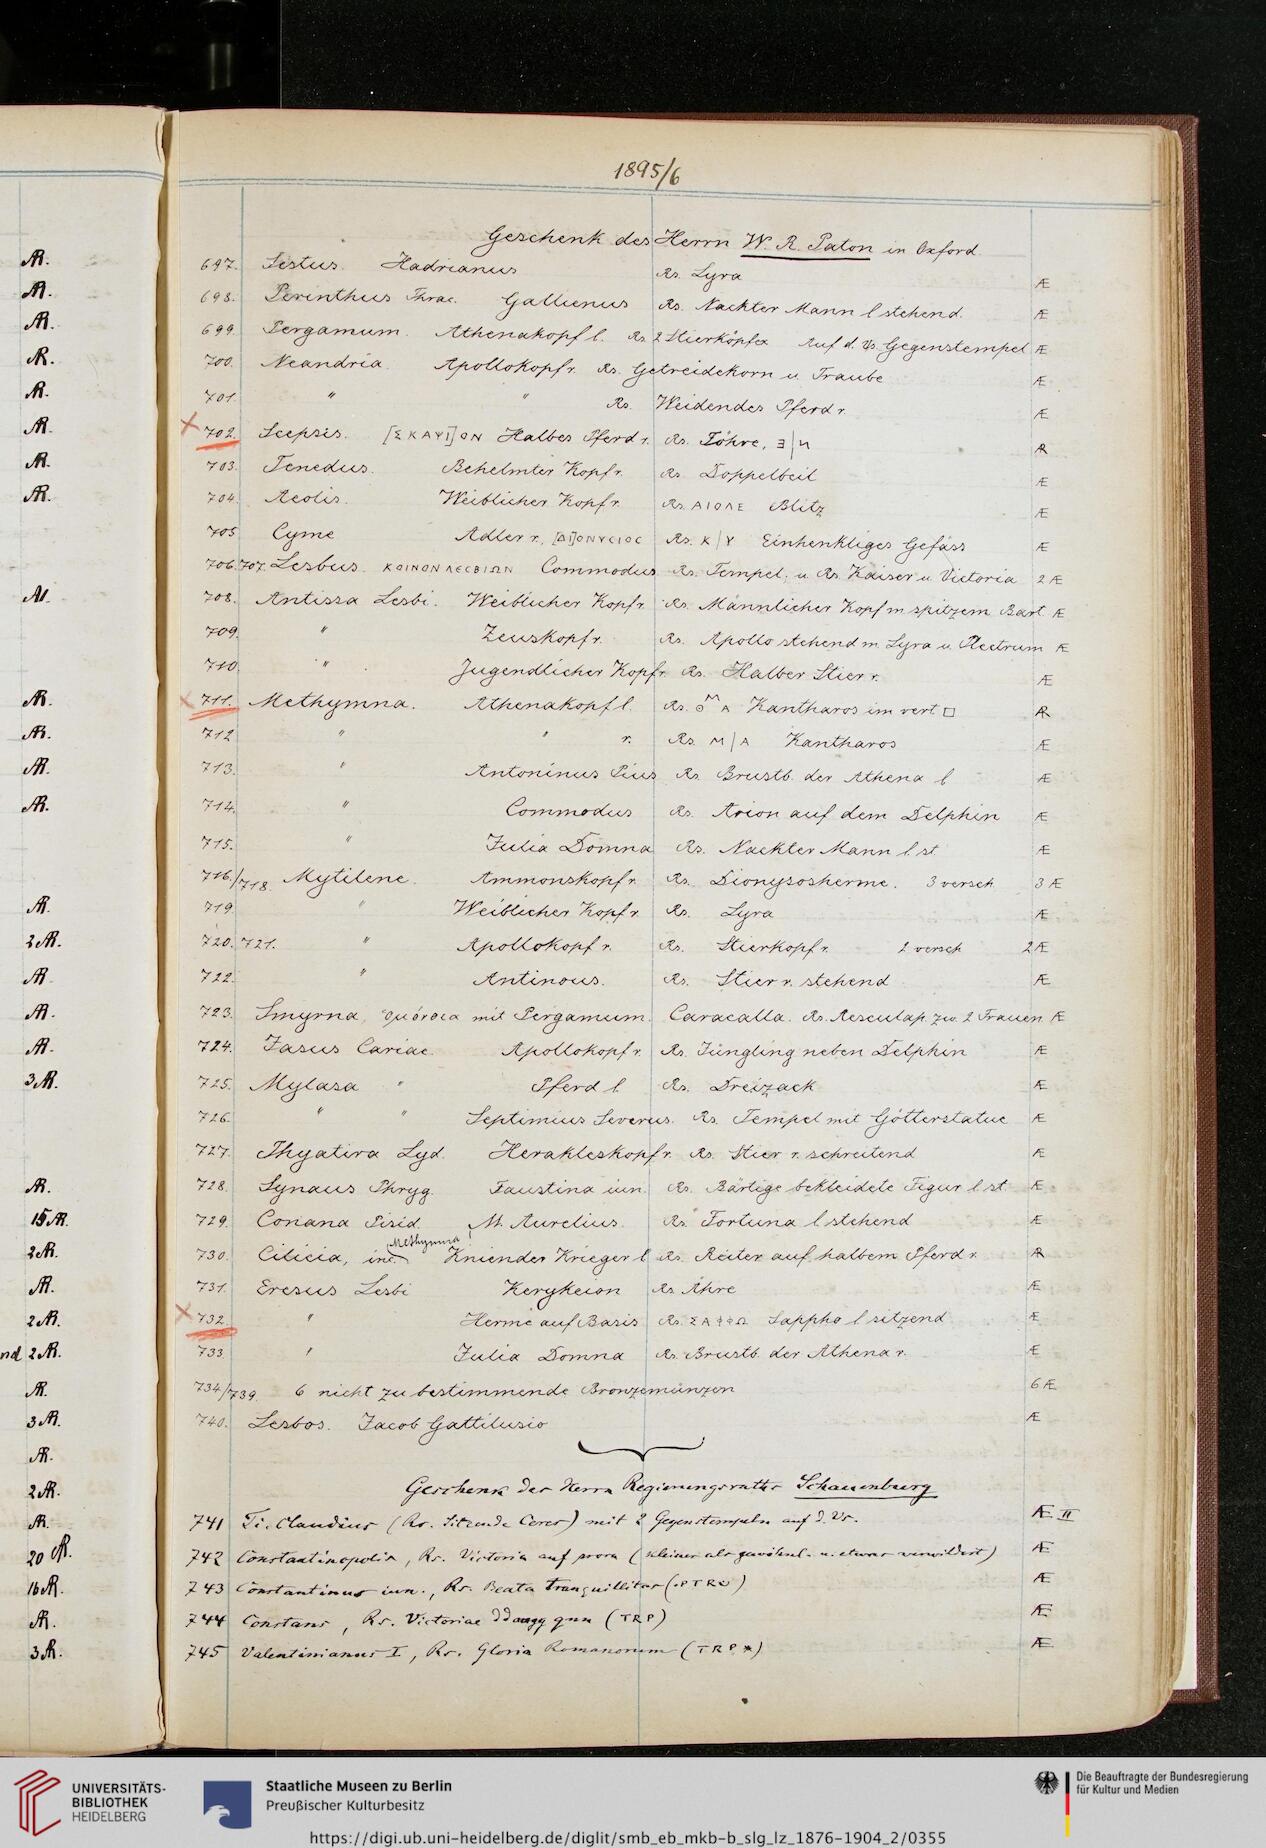 1895/6
Geschenk des Herrn W. R. Paton in Oxford.
697. Sestus. Hadrianus Rs. Lyra Æ
698. Perinthus Thrac. Gallienus Rs. Nackter Mann l stehend. Æ
699. Pergamum. Athenakopf l. Rs. 2 Stierköpfe Auf d. Vs. Gegenstempel Æ
700. Neandria. Apollokopf r. Rs. Getreidekorn u. Traube Æ
701. " " Rs. Weidendes Pferd r. Æ
× 702. Scepsis. [ΣΚΑΨΙ]ΟΝ Halbes Pferd r. Rs. Föhre, Ǝ|И AR
703. Tenedus. Behelmter Kopf r. Rs. Doppelbeil Æ
704. Aeolis. Weiblicher Kopf r. Rs. ΑΙΟΛΕ Blitz Æ
705 Cyme Adler r., [ΔΙ]ΟΝΥϹΙΟϹ Rs. Κ|Υ Einhenkliges Gefäss Æ
706. 707. Lesbus. ΚΟΙΝΟΝ ΛΕϹΒΙΩΝ Commodus Rs. Tempel; u. Rs. Kaiser u. Victoria 2 Æ
708. Antissa Lesbi. Weiblicher Kopf r. Rs. Männlicher Kopf m spitzem Bart Æ
709. " Zeuskopf r. Rs. Apollo stehend m. Lyra u. Plectrum Æ
710. " Jugendlicher Kopf r. Rs. Halber Stier r. Æ
× 711. Methymna. Athenakopf l. Rs. Kantharos im vert □ AR
712 " " r. Rs. Μ|Α Kantharos Æ
713. " Antoninus Pius Rs. Brustb. der Athena l Æ
714. " Commodus Rs. Arion auf dem Delphin Æ
715. " Julia Domna Rs. Nackter Mann l. st Æ
716./718. Mytilene. Ammonskopf r. Rs. Dionysosherme. 3 versch. 3 Æ
719. " Weiblicher Kopf r. Rs. Lyra Æ
720. 721. " Apollokopf r. Rs. Stierkopf r. 2 versch 2 Æ
722. " Antinous. Rs. Stier r. stehend Æ
723. Smyrna, ὁμόνοια mit Pergamum. Caracalla. Rs. Aesculap. zw. 2 Frauen Æ
724. Jasus Cariae. Apollokopf r. Rs. Jüngling neben Delphin Æ
725. Mylasa " Pferd l. Rs. Dreizack Æ
726. " " Septimius Severus. Rs. Tempel mit Götterstatue Æ
727. Thyatira Lyd. Herakleskopf r. Rs. Stier r. schreitend Æ
728. Synaus Phryg. Faustina iun. Rs. Bärtige bekleidete Figur l st. Æ
729. Conana Pisid. M. Aurelius. Rs. Fortuna l stehend Æ
Methymna
730. Cilicia, inc. Kniender Krieger l Rs. Reiter auf halbem Pferd r. AR
731. Eresus Lesbi Kerykeion Rs Ähre Æ
× 732. " Herme auf Basis Rs. ΣΑΦΦΩ Sappho l sitzend Æ
733 " Julia Domna Rs. Brustb. der Athena r. Æ
734/739. 6 nicht zu bestimmende Bronzemünzen 6 Æ
740. Lesbos. Jacob Gattilusio Æ
Geschenk des Herrn Regierungsraths Schauenburg
741 Ti. Claudius (Rs. Sitzende Ceres) mit 2 Gegenstempeln auf d. Vs. Æ II
742 Constantinopolis, Rs. Victoria auf prora (kleiner als gewöhnl. u. etwas verwildert) Æ
743 Constantinus iun., Rs. Beata tranquillitas Æ
744 Constans, Rs. Victoriae dd augg qnn (TRP) Æ
745 Valentinianus I, Rs. Gloria Romanorum (TRP*) Æ
AR.
AR.
AR.
AR.
AR.
AR.
AR.
AR.
AR.
AR.
AR.
AR.
AR.
2 AR.
AR
AR.
AR.
3 AR.
AR.
15 AR.
2 AR.
AR.
2 AR.
nd 2 AR.
AR.
3 AR.
AR.
2 AR.
AR.
20 AR.
16 AR.
AR.
3 AR.
UNIVERSITÄTS-
BIBLIOTHEK
HEIDELBERG
Staatliche Museen zu Berlin
Preußischer Kulturbesitz
Die Beauftragte der Bundesregierung
für Kultur und Medien
https://digi.ub.uni-heidelberg.de/diglit/smb_eb_mkb-b_slg_lz_1876-1904_2/0355